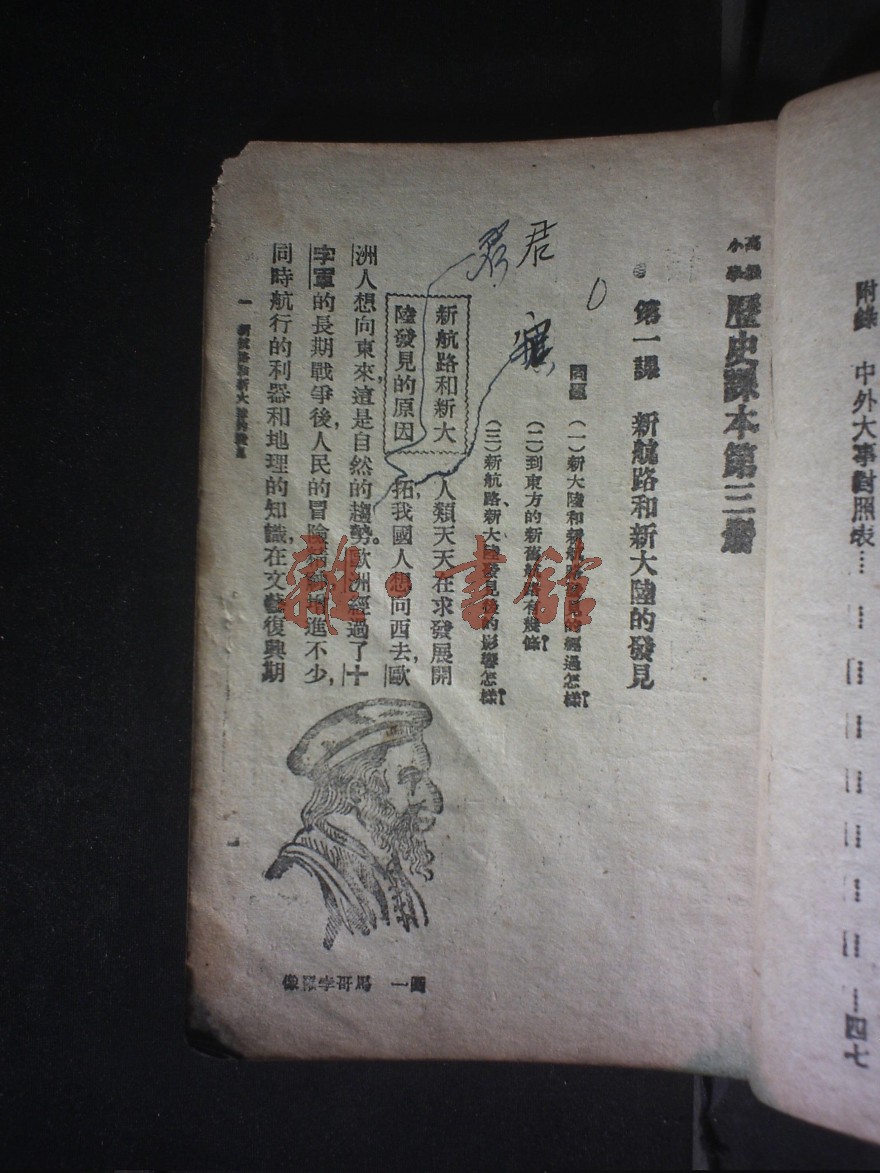 附錄　中外大事對照表⋯⋯四七
高級小學
歷史課本第三冊
第一課　新航路和新大陸的發見
問題　(一)新大陸和新航路發見的經過怎樣?
(二)到東方的新舊航路有幾條?
(三)新航路、新大陸發見後的影響怎樣?
君
新航路和新大
陸發見的原因
人類天天在求發展開
拓,我國人想向西去,歐
洲人想向東來,這是自然的趨勢。歐洲經過了十
字軍的長期戰爭後,人民的冒險精神,增進不少,
同時航行的利器和地理的知識,在文藝復興期
圖一　馬哥孛羅像
一　新航路和新大陸的發見
一
雜·書館